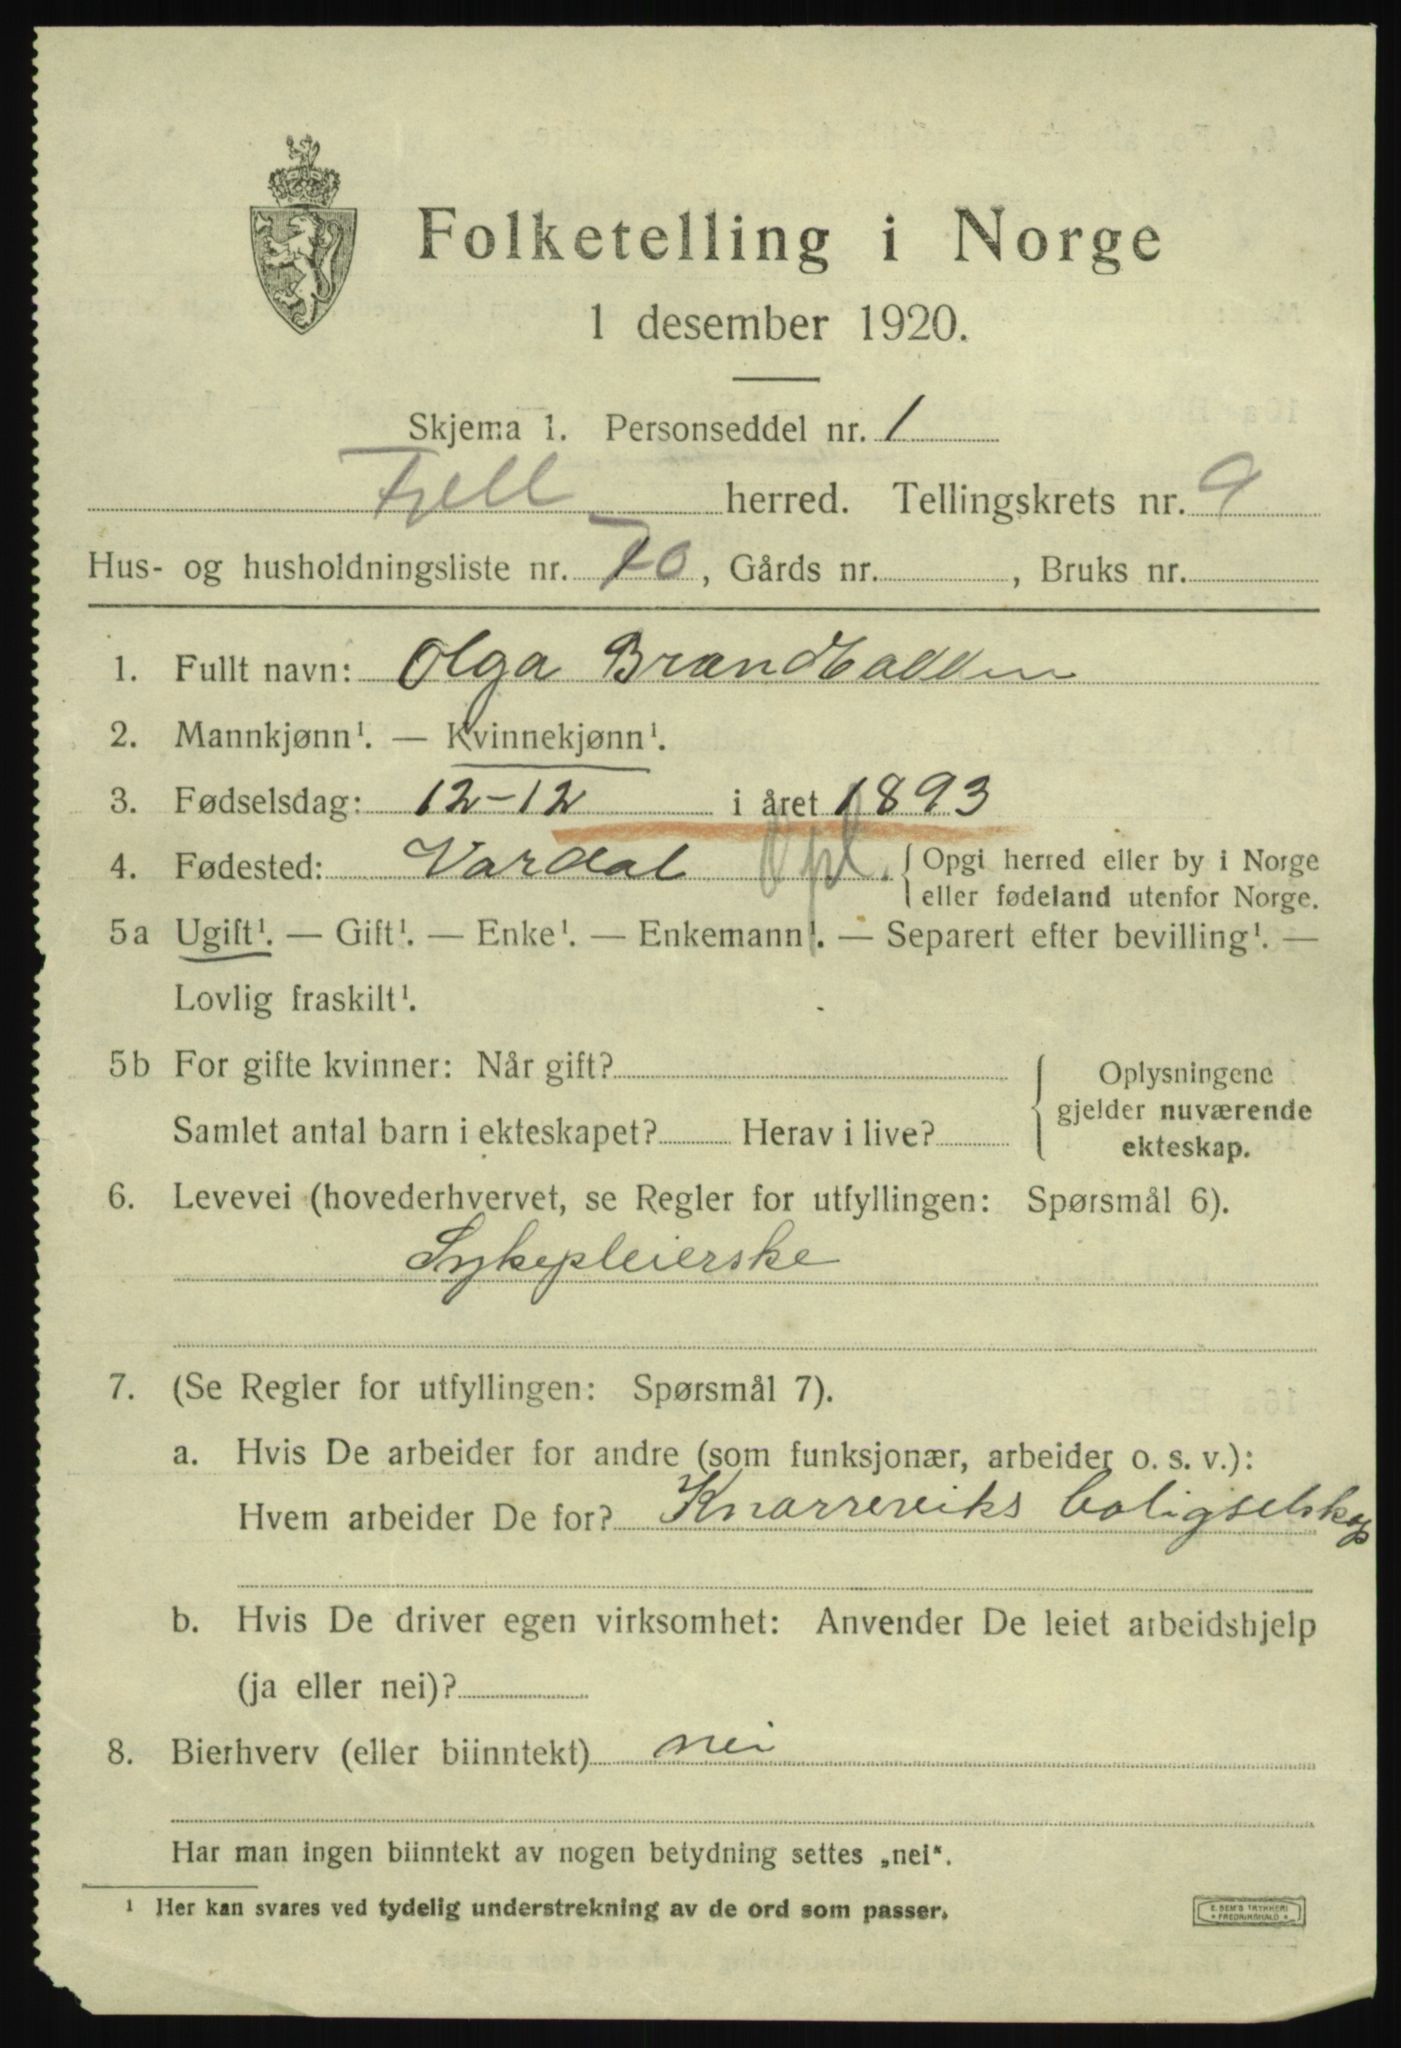 Folketelling i Norge
1 desember 1920.
Skjema 1. Personseddel nr. 1
Fjell herred. Tellingskrets nr. 9
Hus- og husholdningsliste nr. 70, Gårds nr. , Bruks nr.
1. Fullt navn: Olga
2. Mannkjønn¹. — Kvinnekjønn¹.
3. Fødselsdag: 12-12 i året 1893
4. Fødested: Vardal Opl. { Opgi herred eller by i Norge
eller fødeland utenfor Norge.
5a Ugift¹. — Gift¹. — Enke¹. — Enkemann¹. — Separert efter bevilling¹. —
Lovlig fraskilt¹.
5b For gifte kvinner: Når gift? { Oplysningene
gjelder nuværende
Samlet antal barn i ekteskapet? Herav i live?
ekteskap.
6. Levevei (hovederhvervet, se Regler for utfyllingen: Spørsmål 6).
Sykepleierske
7. (Se Regler for utfyllingen: Spørsmål 7).
a. Hvis De arbeider for andre (som funksjonær, arbeider o. s. v.):
Hvem arbeider De for? Knarreviks boligselskap
b. Hvis De driver egen virksomhet: Anvender De leiet arbeidshjelp
(ja eller nei)?
8. Bierhverv (eller biinntekt) nei
Har man ingen biinntekt av nogen betydning settes „nei“.
¹ Her kan svares ved tydelig understrekning av de ord som passer.
E. SEM'S TRYKKERI
• FREDRIKSHALD •